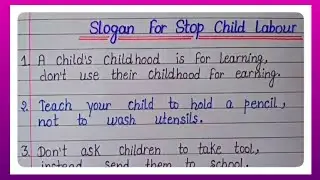 Slogan for Stop Child Labour
1. A child's childhood is for learning,
don't use their childhood for earning.
2. Teach your child to hold a pencil,
not to wash utensils.
3. Don't ask children to take tool,
instead send them to school.